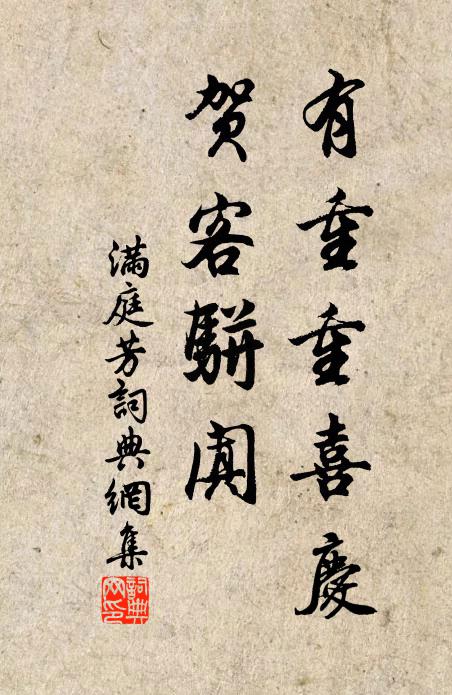 有重重喜慶
賀客駢闐
滿庭芳詞典網集
詞典
网印